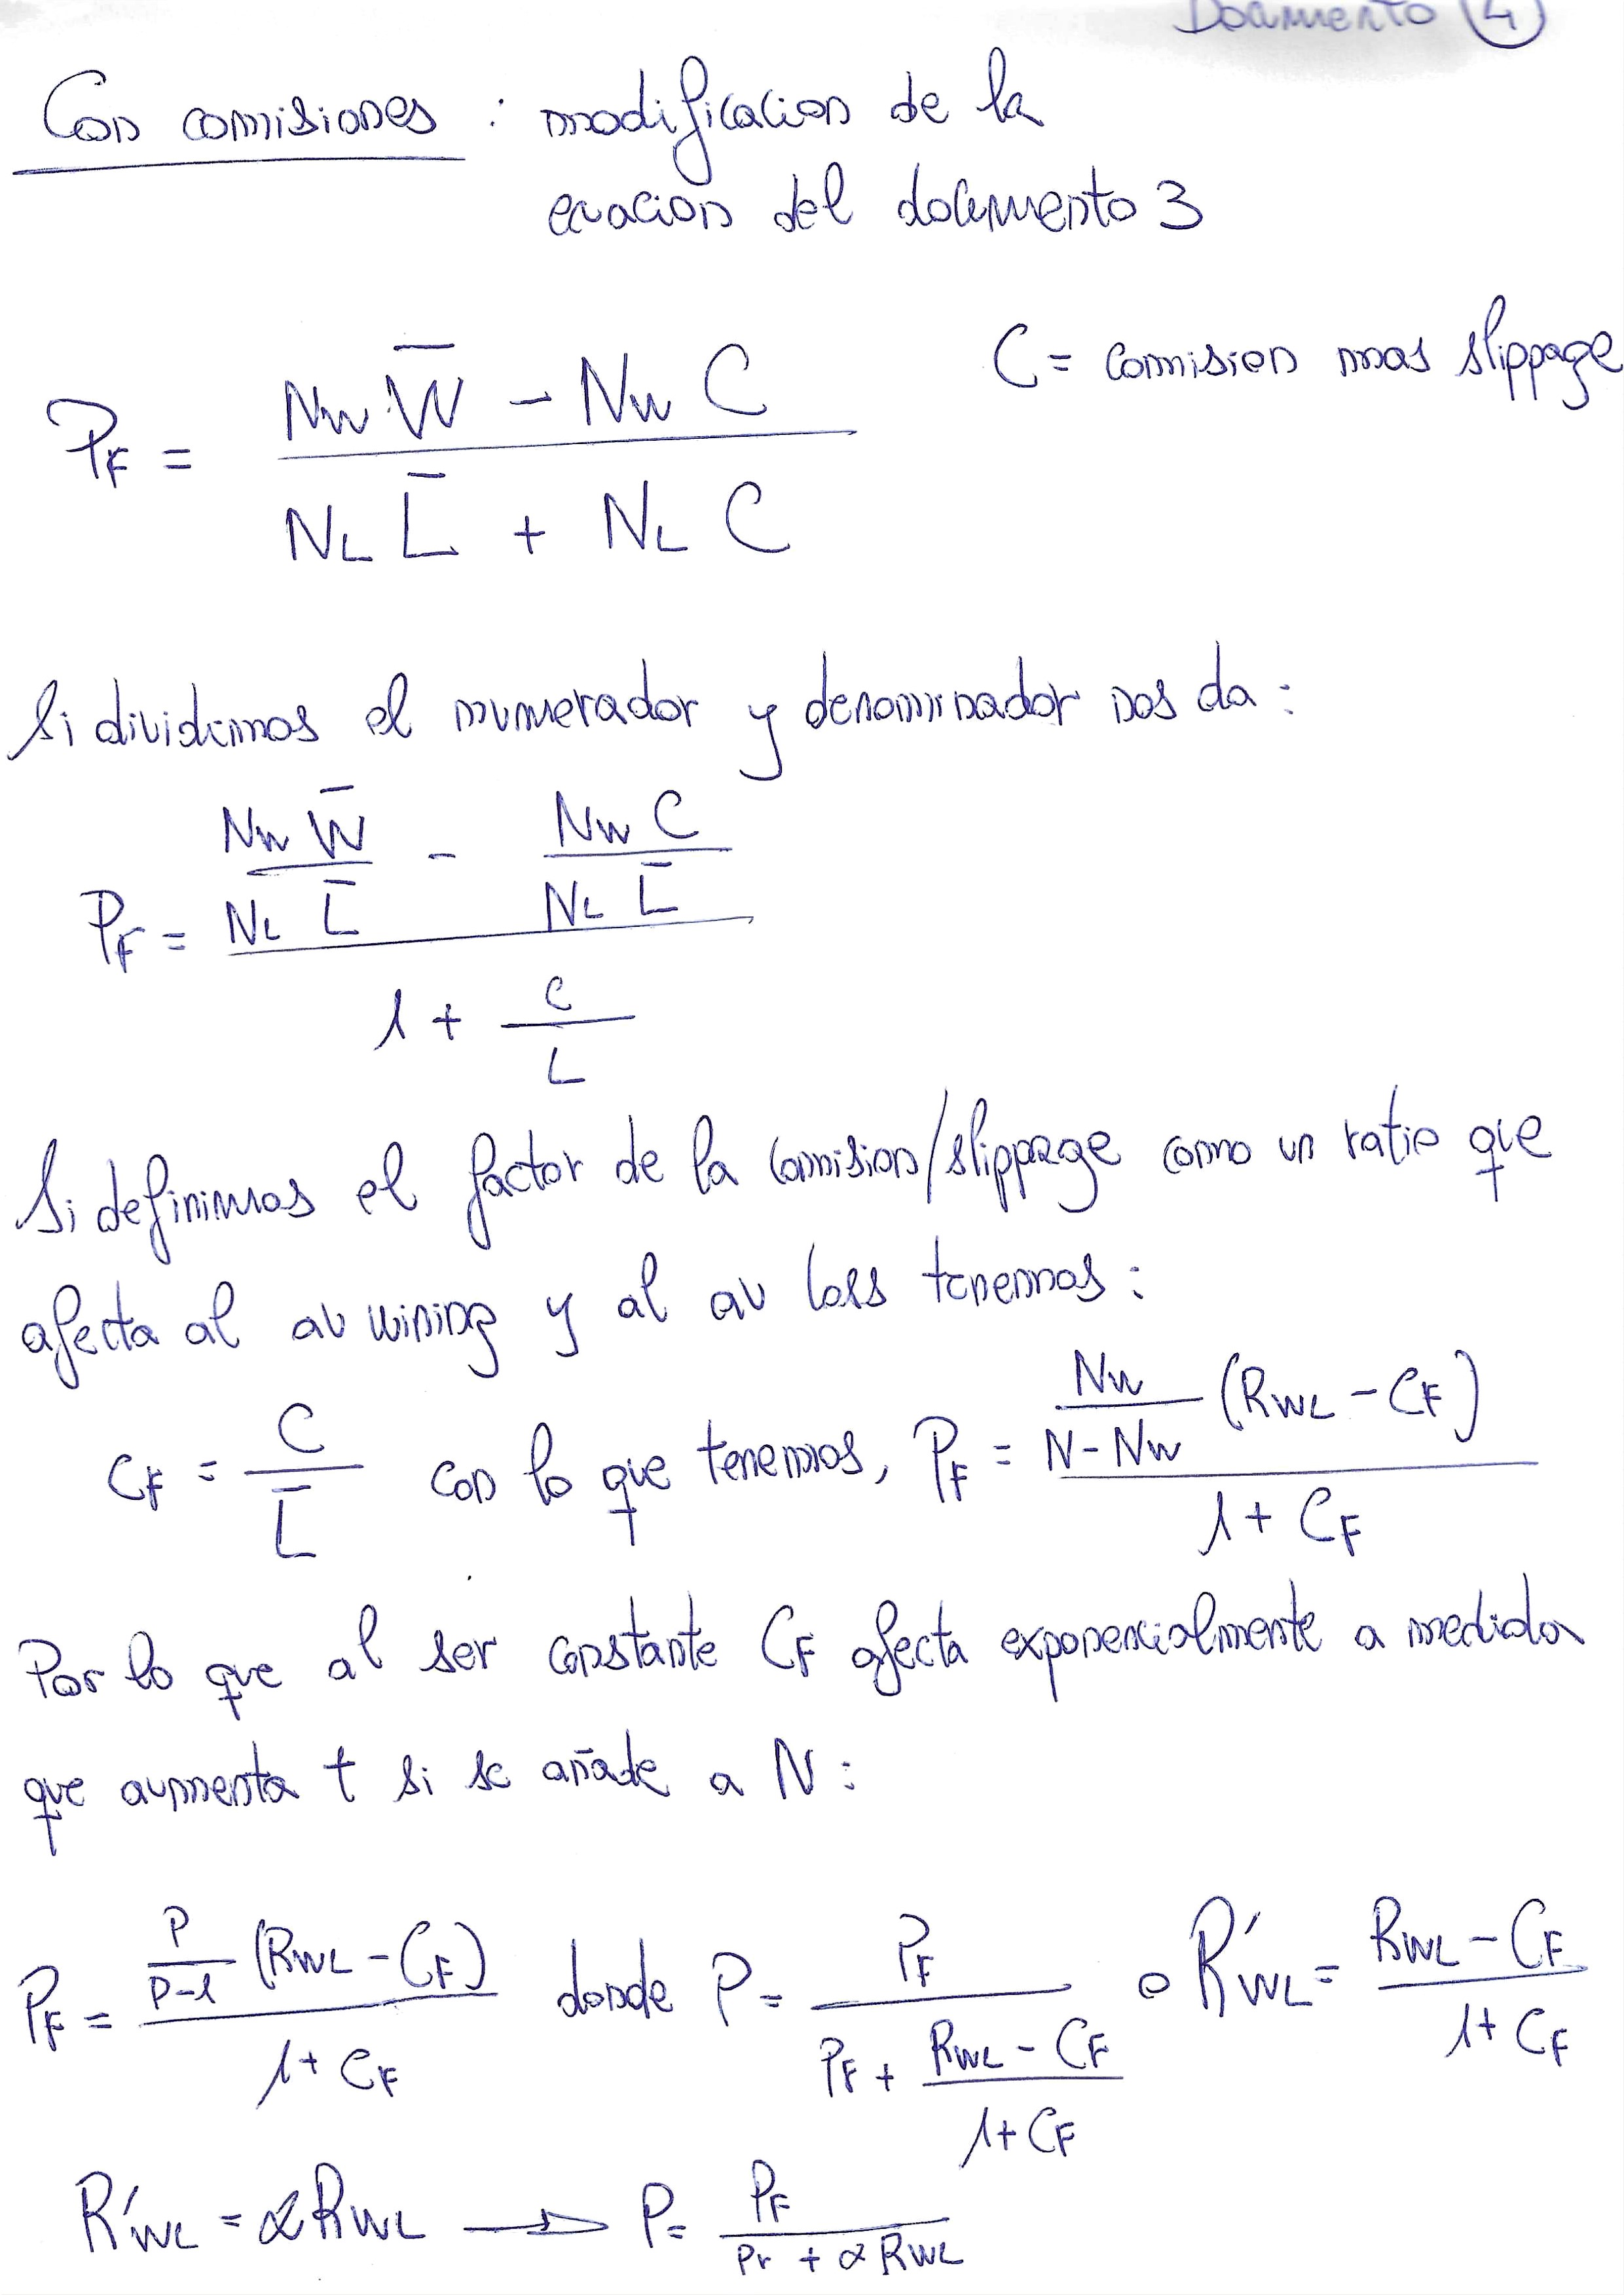 Documento 4
Con comisiones : modificacion de la
ecuacion del documento 3
C = comision mas slippage
P_F = (N_W W̄ - N_W C) / (N_L L̄ + N_L C)
Si dividimos el numerador y denominador nos da :
P_F = ((N_W W̄)/(N_L L̄) - (N_W C)/(N_L L̄)) / (1 + C/L)
Si definimos el factor de la comision/slippage como un ratio que
afecta al av wining y al av loss tenemos :
C_F = C/L̄ con lo que tenemos, P_F = (N_W/(N-N_W) (R_WL - C_F)) / (1 + C_F)
Por lo que al ser constante C_F afecta exponencialmente a medida
que aumenta t si se añade a N :
P_F = (P/(P-1) (R_WL - C_F)) / (1 + C_F) donde P = P_F / (P_F + (R_WL - C_F)/(1 + C_F)) o R'_WL = (R_WL - C_F)/(1 + C_F)
R'_WL = α R_WL → P = P_F / (P_F + α R_WL)